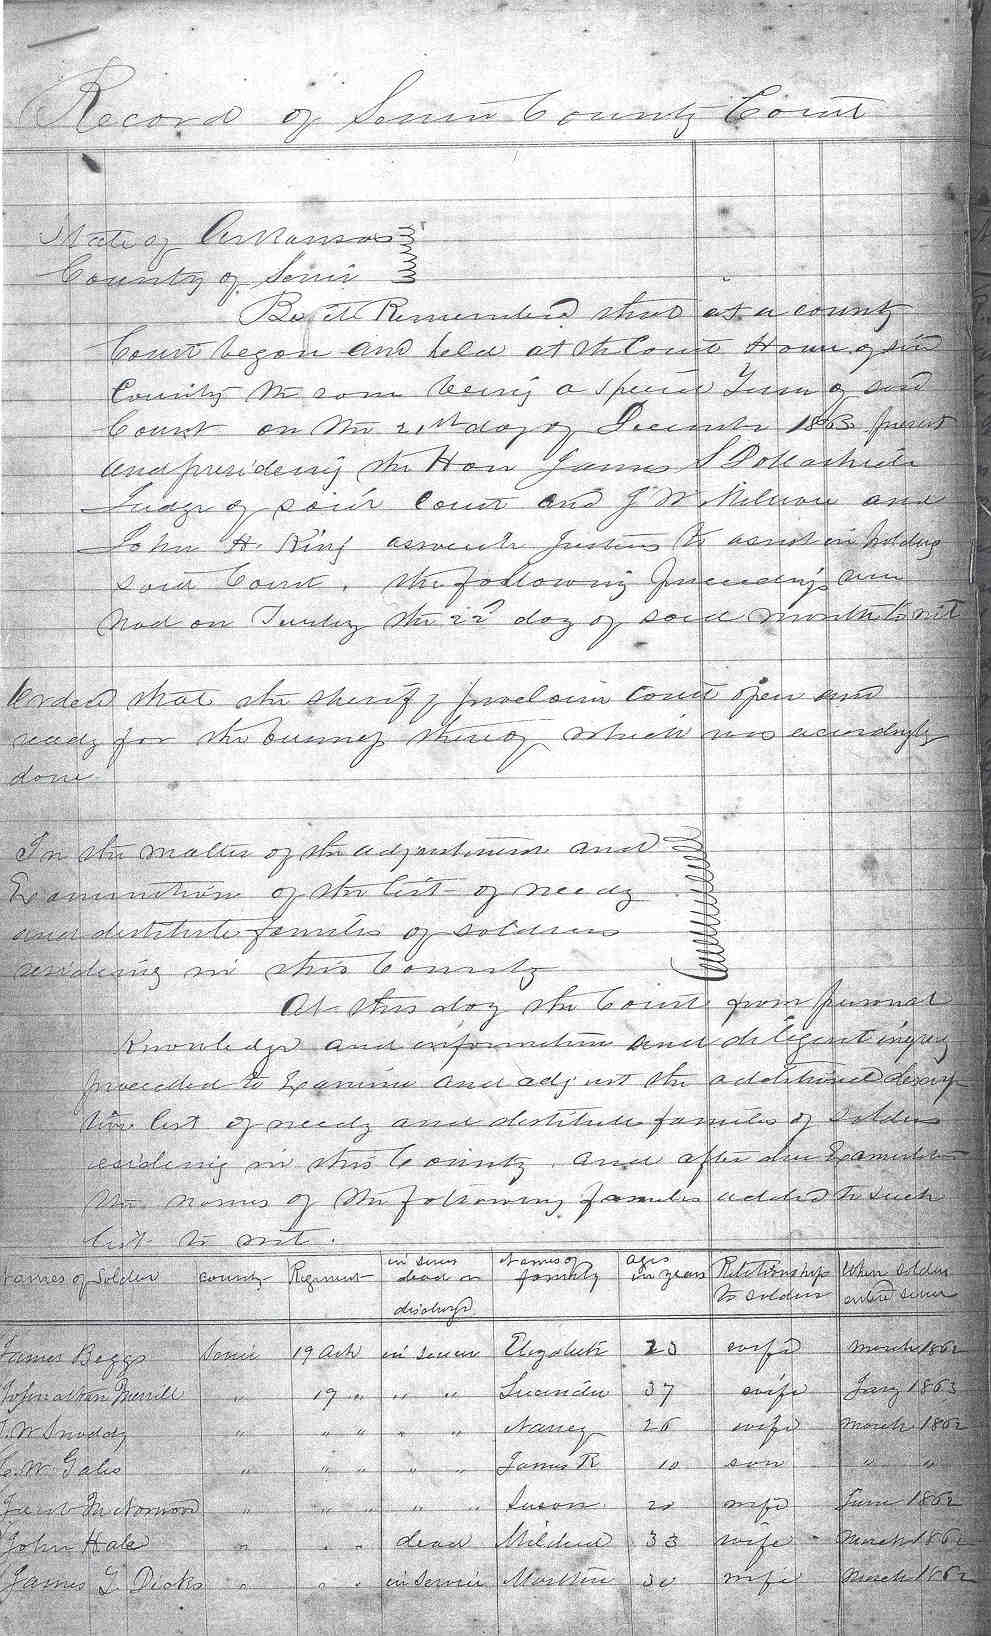 Record of Sevier County Court
State of Arkansas
County of Sevier
Be it Remembered that at a county
Court began and held at the Court House of said
County the same being a special Term of said
Court on the 21st day of December 1863 present
and presiding the Hon James S
Judge of said Court and J W and
John H. King associate Justices to assist in holding
said Court. the following proceedings were
had on Tuesday the 22d day of said month to wit
Orderd that the sheriff proclaim court open and
ready for the business thereof which was acordingly
done
In the matter of the adjustment and
Examination of the list of needy
and destitute families of soldiers
residing in this County
At this day the Court from personal
Knowledge and information and diligent inquiry
proceded to Examine and adjust the additional descrip
tive list of needy and destitute families of soldiers
residing in this County and after due Examination
the names of the following families added to such
list to wit.
names of Soldier county Regiment in servis dead or discharge Names of family ages in years Relationship to soldier When soldier enterd servis
James Beggs Sevier 19 Ark in servis Elizabeth 23 wife March 1862
Johnathan Merrill " 19 " " " Lucinda 37 wife Jany 1863
Snoddy " " " " " Nancy 26 wife March 1862
W. Gales " " " " " James R 10 son " "
Jacob " " " " " Susan wife June 1862
John Hale " " " dead Mildred 33 wife March 1862
James Dicks " " " in servis 30 wife March 1862